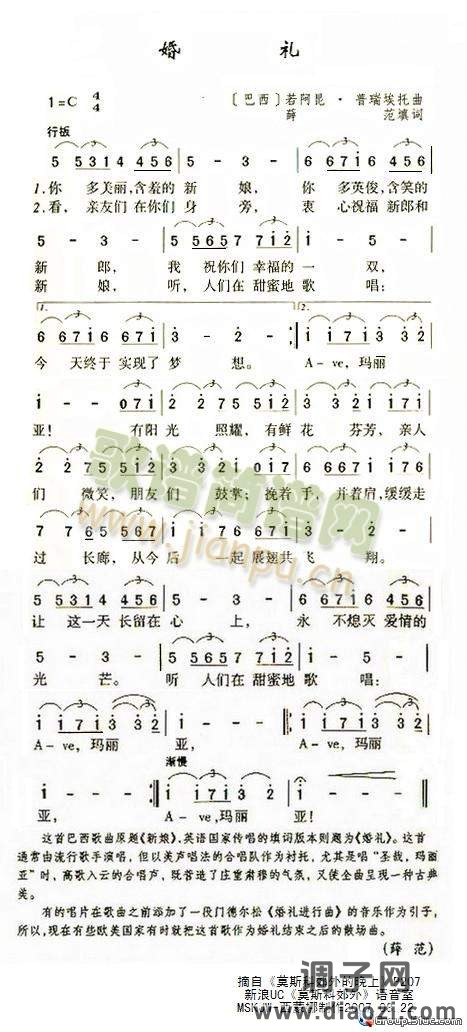 婚 礼
1=C 4/4 〔巴西〕若阿昆·普瑞埃托曲
薛 范填词
行板
5 5314 456 5 - 3 - 6 6716 246
1.你 多美丽,含羞的 新 娘, 你 多英俊,含笑的
2.看, 亲友们 在你们 身 旁, 衷 心祝福 新郎和
5 - 3 - 5 5657 712 1 - 5 -
新 郎, 我 祝你们 幸福的 一 双,
新 娘, 听, 人们在 甜蜜地 歌 唱:
1. 2.
6 6716 671 2 - 2 - 1 1713 332
今 天终于 实现了 梦 想。 A-ve,玛丽
1 - - 071 2 275 512 3 321 171
亚! 有阳光 照耀,有鲜花 芬芳,亲人
2 275 512 3 - 3 321 6 6671 176
们 微笑,朋友们 鼓掌;挽着手,并着肩,缓缓走
7 765 567 1 176 671 2 - 2 -
过 长廊,从今后 一起展翅共飞 翔。
5 5314 456 5 - 3 - 6 6716 456
让 这一天 长留在 心 上, 永 不熄灭 爱情的
5 - 3 - 5 5657 712 1 - 3 -
光 芒。 听 人们在 甜蜜地 歌 唱:
1 1713 332 1 - 1 - 1 1713 332
A-ve,玛丽 亚, A-ve,玛丽
渐慢
1 - 1 - 1 1713 32 1 - - -
亚, A-ve,玛丽 亚!
这首巴西歌曲原题《新娘》,英语国家传唱的填词版本则题为《婚礼》。这首
通常由流行歌手演唱,但以美声唱法的合唱队作为衬托,尤其是唱“圣哉,玛丽
亚”时,高歌入云的合唱声,既营造了庄重肃穆的气氛,又使全曲呈现一种古典
美。
有的唱片在歌曲之前添加了一段门德尔松《婚礼进行曲》的音乐作为引子,
所以,现在有些欧美国家有时就把这首歌作为婚礼结束之后的散场曲。
(薛 范)
摘自《莫斯科郊外的晚上》P207
新浪UC《莫斯科郊外》语音室
歌谱简谱网
www.jianpu.cn
调子网
www.diaozi.net
Group: china_blue.com